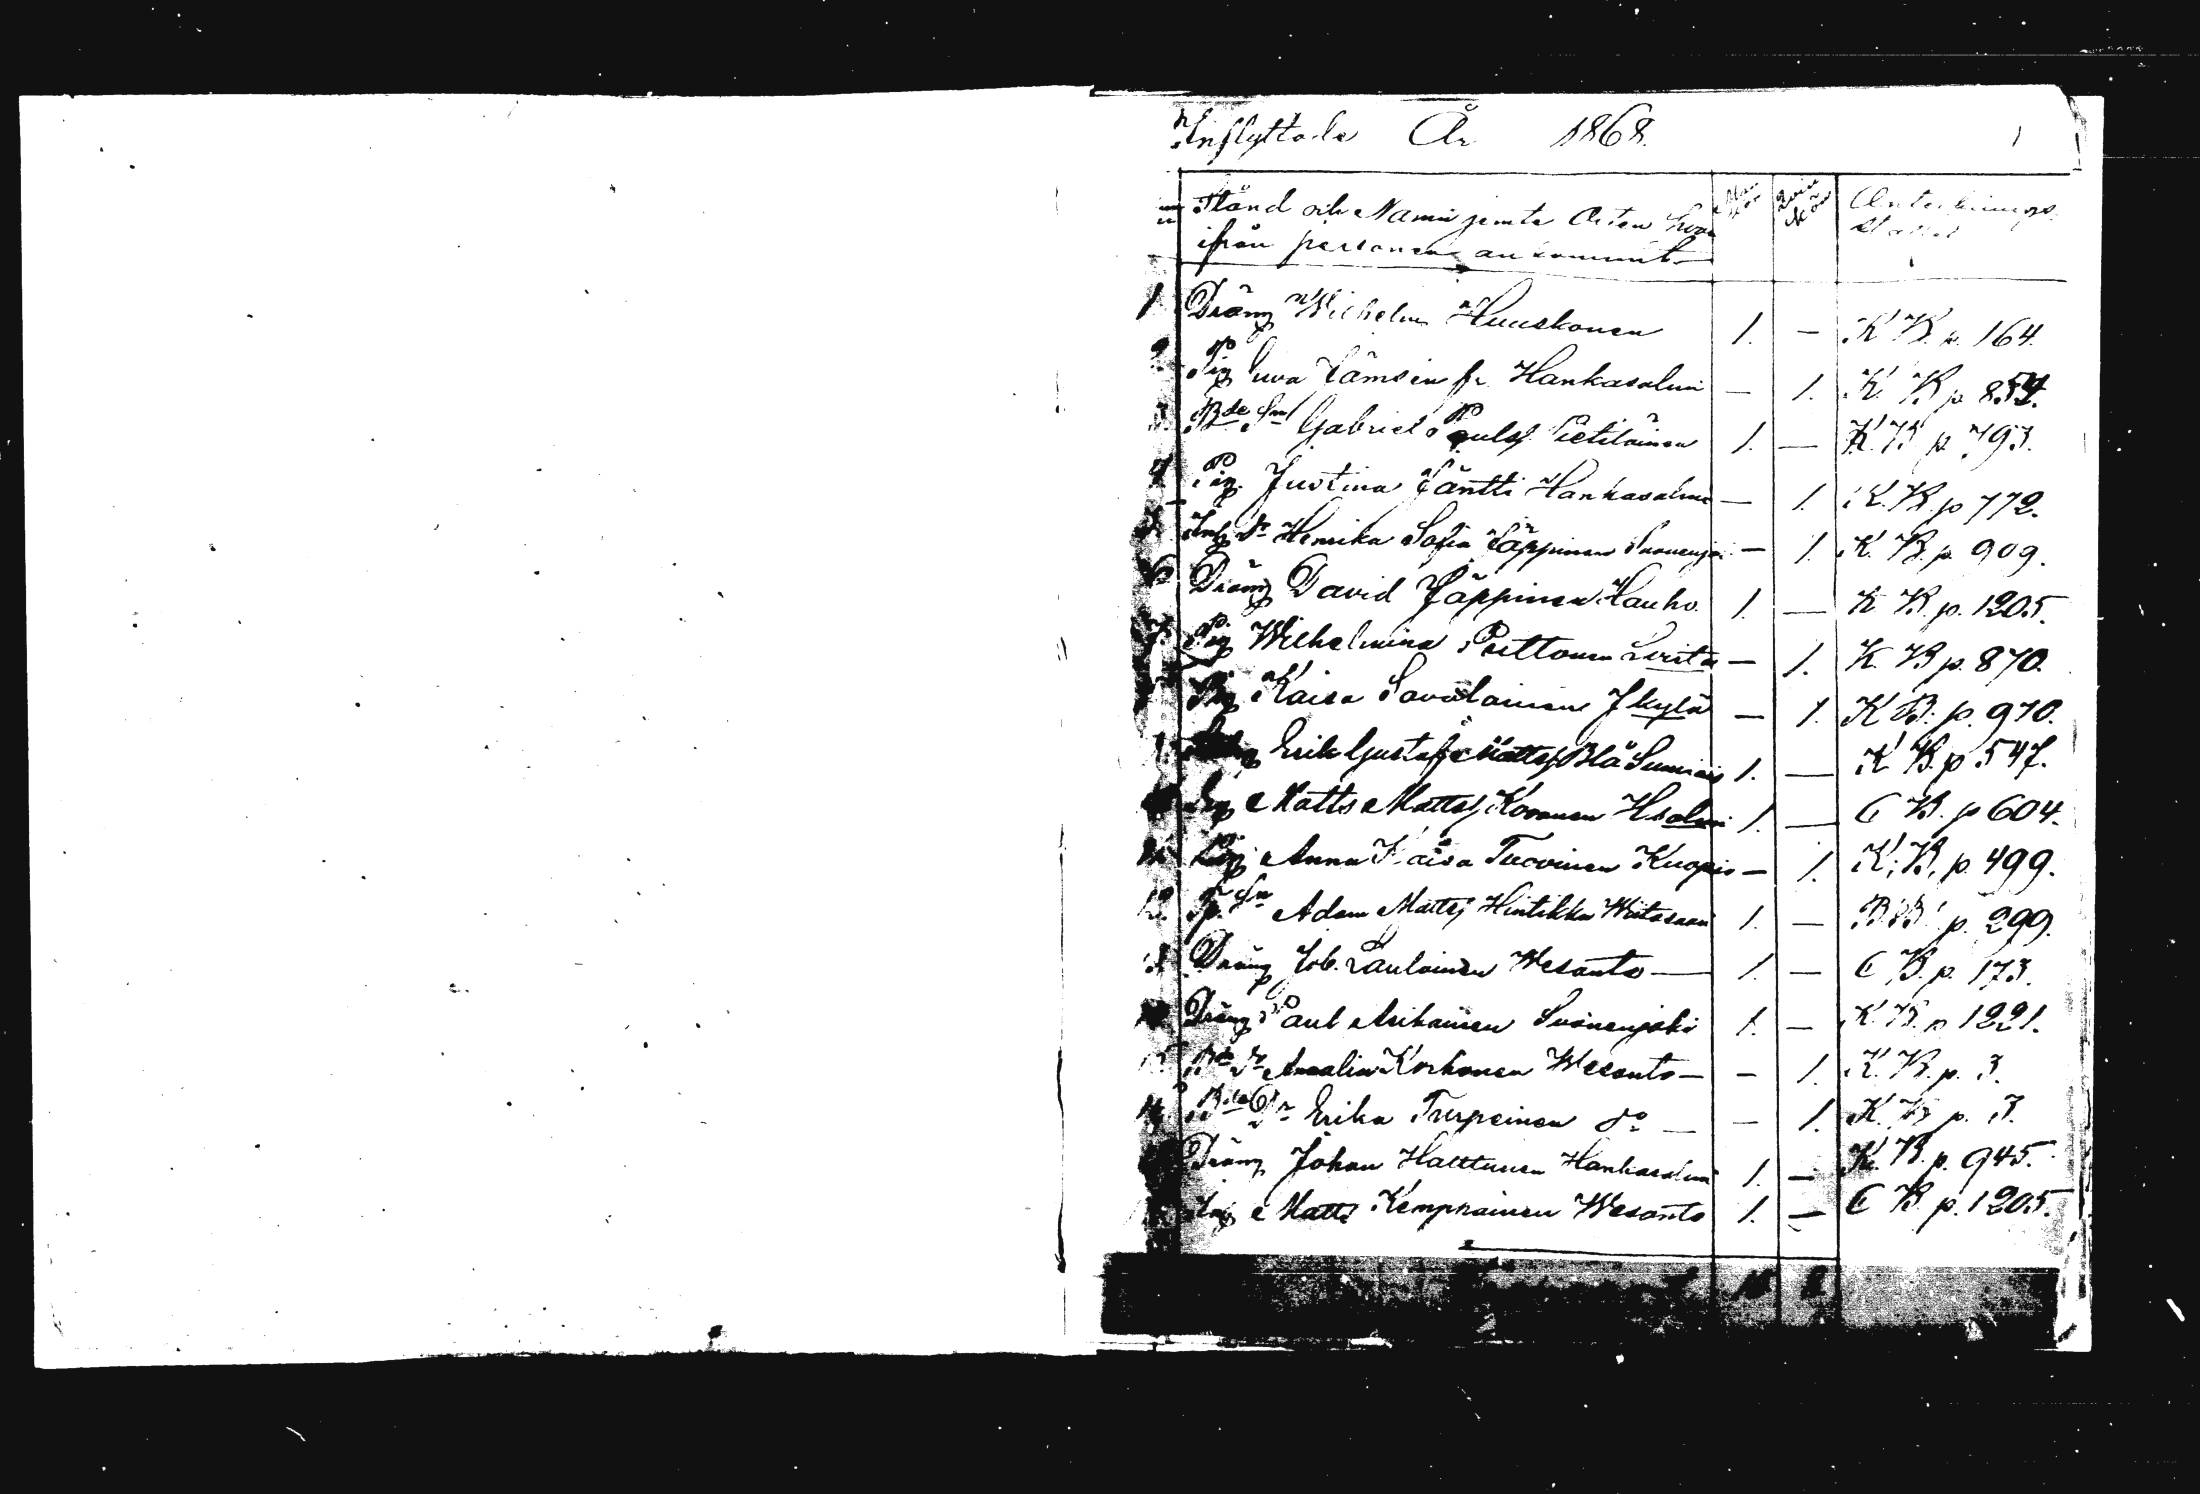 Inflyttade År 1868. 1
Stånd och Namn jemte Orten hvar Man kön Qvin kön Anteckningar
ifrån personen ankommit
1 Dräng Wilhelm Huuskonen 1. — K. B. p. 164.
2 Pig Eva Jämsén fr. Hankasalmi — 1. K. B. p. 854.
3. Bde Sn Gabriel Paulsf Pietiläinen 1. — K. B. p. 793.
4 Pig. Justina Jäntti Hankasalmi — 1. K. B. p 772.
Dr Henrika Sofia Jäppinen Suonenjoki — 1. K. B. p. 909.
6 Dräng David Jäppinen Hauho. 1. — K. B. p. 1205.
7. Pig Wilhelmina Puttonen — 1. K. B. p. 870.
Pig Kaisa Savolainen Jkylä — 1. K. B. p. 970.
Erik Gustaf Mattsf Blå Sumiais 1. — K. B. p. 547.
Matts Mattsf Kononen Hsalmi 1. — C B. p 604.
Pig Anna Kaisa Tuovinen Kuopio — 1. K. B. p. 499.
12. Sn Adam Mattsf Hintikka Wiitasaari 1. — B. B. p. 299.
Dräng Job. Laulainen Wesanto — 1. — C B. p. 173.
Dräng Paul Asikainen Suonenjoki 1. — K. B. p 1221.
15. Bde Dr Amalia Korhonen Wesanto — — 1. K. B. p. 3.
Bde Dr Erika Turpeinen do — — 1. K. B. p. 3.
Dräng Johan Halttunen Hankasalmi 1. — K. B. p. 945.
Matts Kemppainen Wesanto 1. — C B. p. 1205.